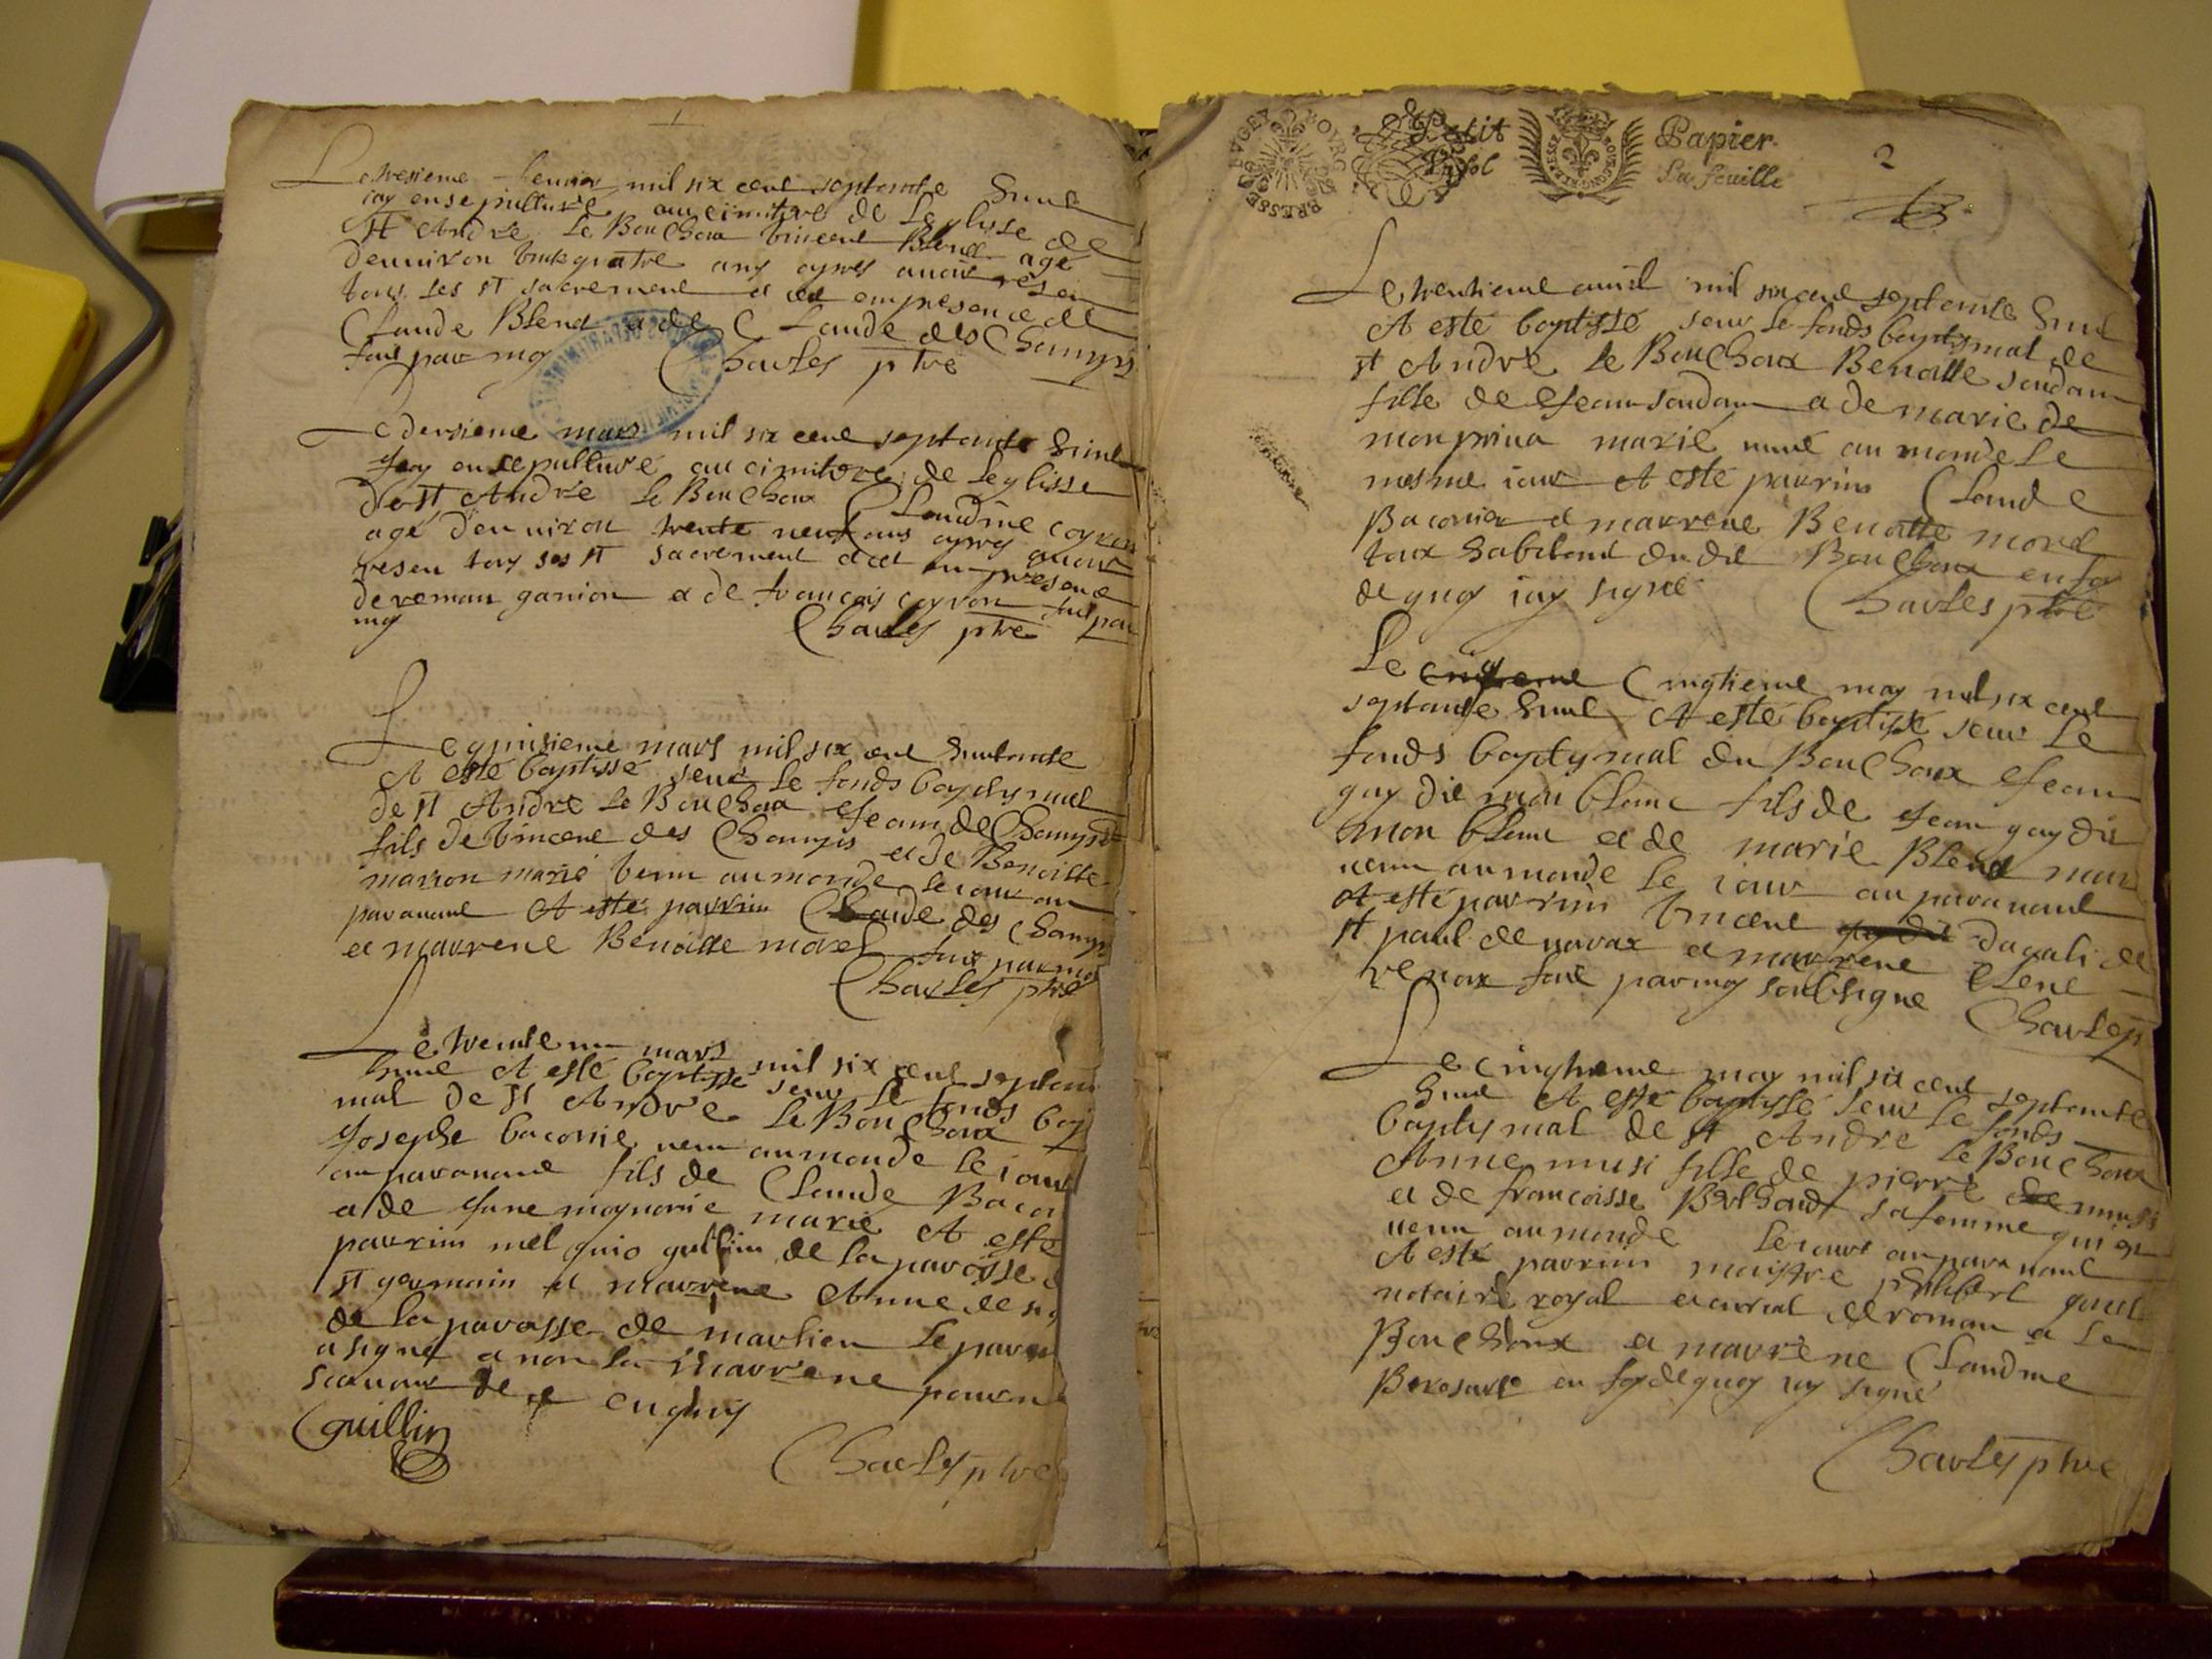 Le tresieme feurier mil six cent septente huict
iay ensepulture au cimitere de Leglise de
st André Le Bouchoux Vincent Blend agé
denuiron vint quatre ans apres auoir reseu
tous ses st sacrement et cet en presence de
Claude Blend et de Claude des Champs
fait par moy Charles ptre
mars mil six cent septante huict
Jay ensepulturé au cimitere de Leglisse
de st André Le Bouchoux Claudine coyron
agé denuiron trente neuf ans apres auoir
reseu tous ses st sacrement et cet en presence
de reman ganion et de francois coyron fait par
moy Charles ptre
Le quinsieme mars mil six cent
A esté baptissé seur Le fonds baptismal
de st André Le Bouchoux Jean de Champs
fils de Vincent des Champs et de Benoitte
marion marié venu au monde Le iour au
parauant A esté parrin Claude des Champs
et marrene Benoitte morel fait par moy
Charles ptre
Le trente un mars mil six cent septant
huict A esté baptissé seur Le fonds bap
mal de st André Le Bouchoux
Joseple baconie venu au monde Le iour
au parauant fils de Claude Bacon
et de Jane moynorie marié A esté
parrin mel quio guillin de la paroisse
st germain et marrene Anne de
de la paroisse de marlieu Le parrin
a signé et non la marrene pour n
scauoir de ce enquis
Guillin
Charles ptre
BVGEY BOVRG PRESSE
Petit Papier
La feuille
2
Le trentieme auril mil six cent septente huict
A esté baptissé seur Le fonds baptismal de
st André Le Bouchoux Benoitte soudan
fille de Jean soudan et de marie de
monprina marié venu au monde Le
mesme iour A esté parrin Claude
Baconier et marrene Benoitte morel
toux habitant du dit Bouchoux en foy
de quoy iay signé Charles ptre
Le Cinqtieme may mil six cent
septante huict A esté baptissé seur Le
fonds baptismal du Bouchoux Jean
guy dit mon blanc fils de Jean guy dit
mon blanc et de marie Blend mar
uenu au monde Le iour au parauant
A esté parrin Vincent dagali de
st paul de uarax et marrene Elene
renox fait par moy soubsigne Charles
Le cinqtieme may mil six cent septante
huict A esté baptissé seur Le fonds
baptismal de st André Le Bouchoux
Anne musi fille de pierre musi
et de francoisse Berthaud sa femme qui est
uenu au monde Le iour au parauant
A esté parrin maistre philibert
notaire royal et curial de roman et Le
Bouchoux et marrene Claudine
en foy de quoy iay signé
Charles ptre